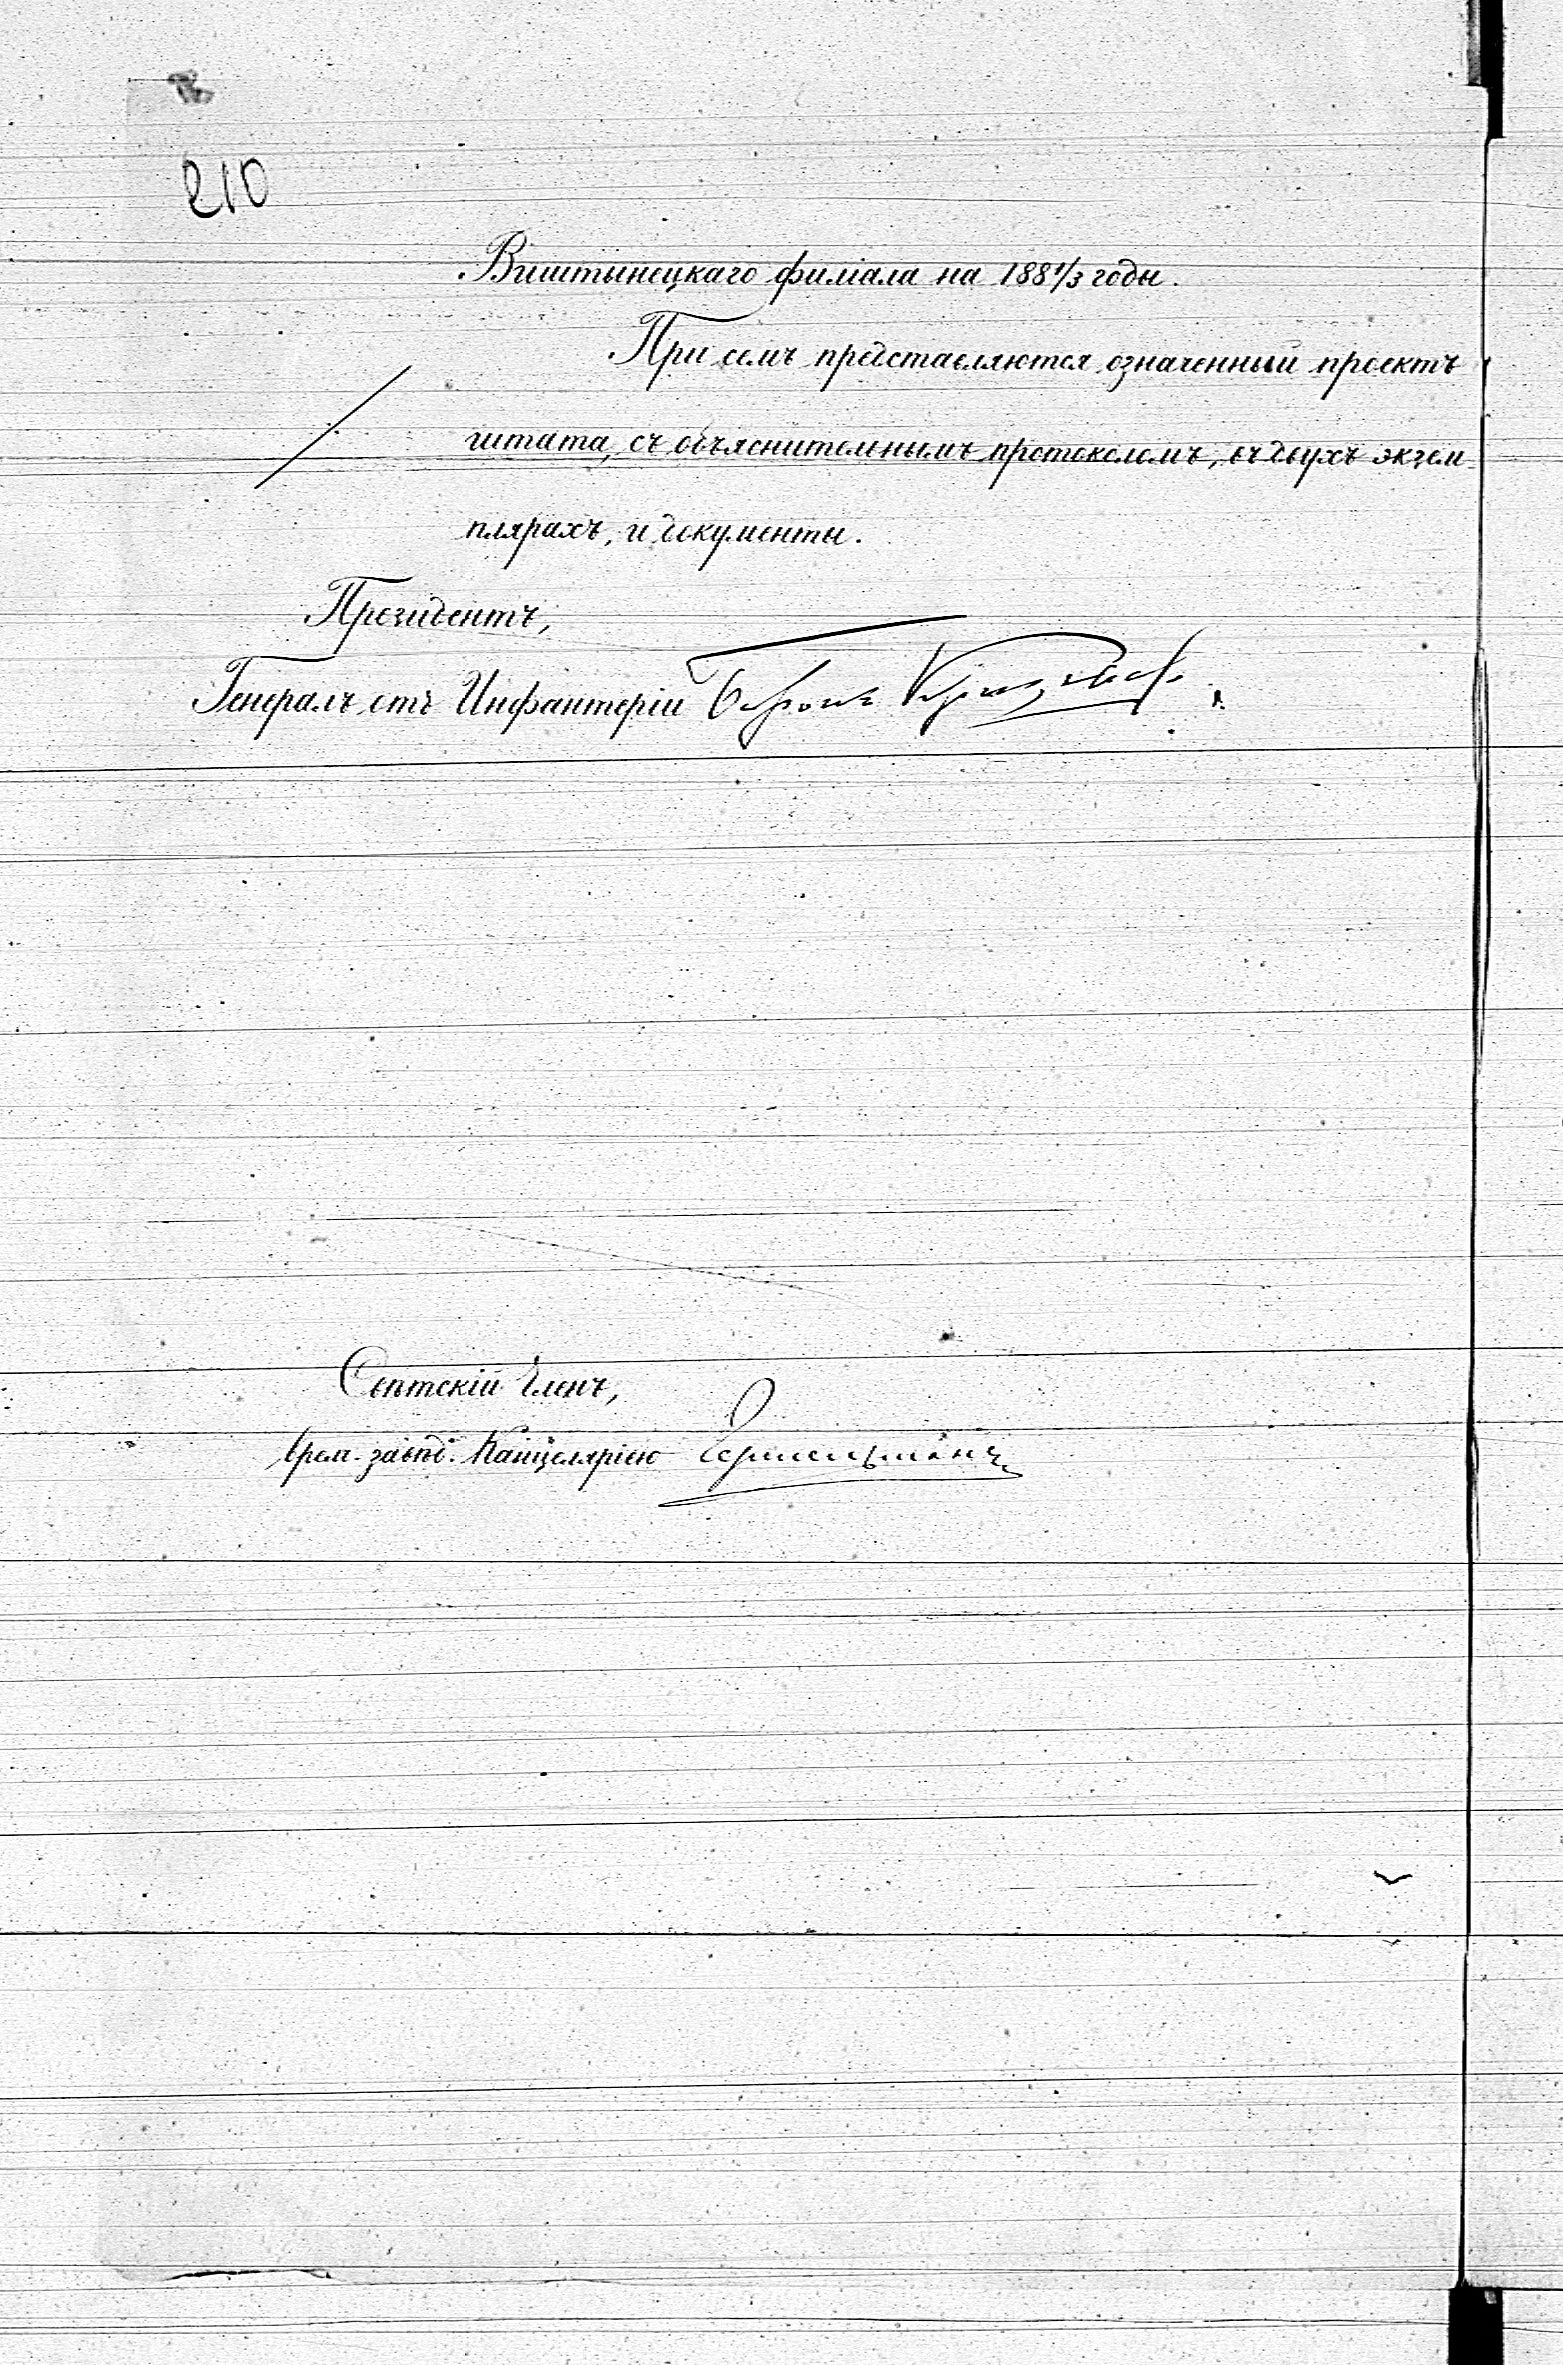 210
Виштынецкаго филіала на 188 1/3 годы.
При семъ представляются означенный проектъ
штата, съ объяснительнымъ протоколомъ, въ двухъ экзем
плярахъ, и документы.
Президентъ,
Генералъ отъ Инфантеріи Баронъ
Свѣтскій Членъ,
Врем. завѣд. Канцеляріею